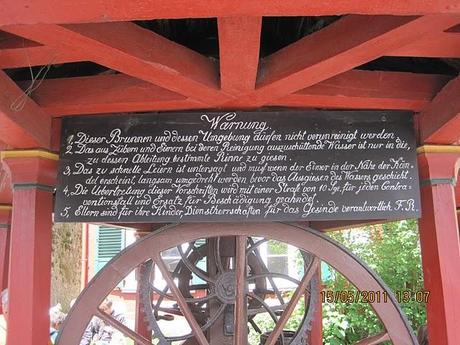 Warnung.
1. Dieser Brunnen und dessen Umgebung dürfen nicht verunreinigt werden
2. Das aus Zubern und Eimern bei deren Reinigung auszuschüttende Wasser ist nur in die,
zu dessen Ableitung bestimmte Rinne zu giesen.
3. Das zu schnelle Leiern ist untersagt und muß wenn der Eimer in der Nähe der Kän-
del erscheint langsam gedreht werden bevor das Ausgisen des Wassers geschieht.
4. Die Uebertretung dieser Vorschriften wird mit einer Strafe von 10 Sgr. für jeden Contra
ventionsfall und Ersatz für Beschädigung geahndet.
5. Eltern sind für ihre Kinder, Dienstherrschaften für das Gesinde verantwortlich F. R.
15/05/2011 13:07